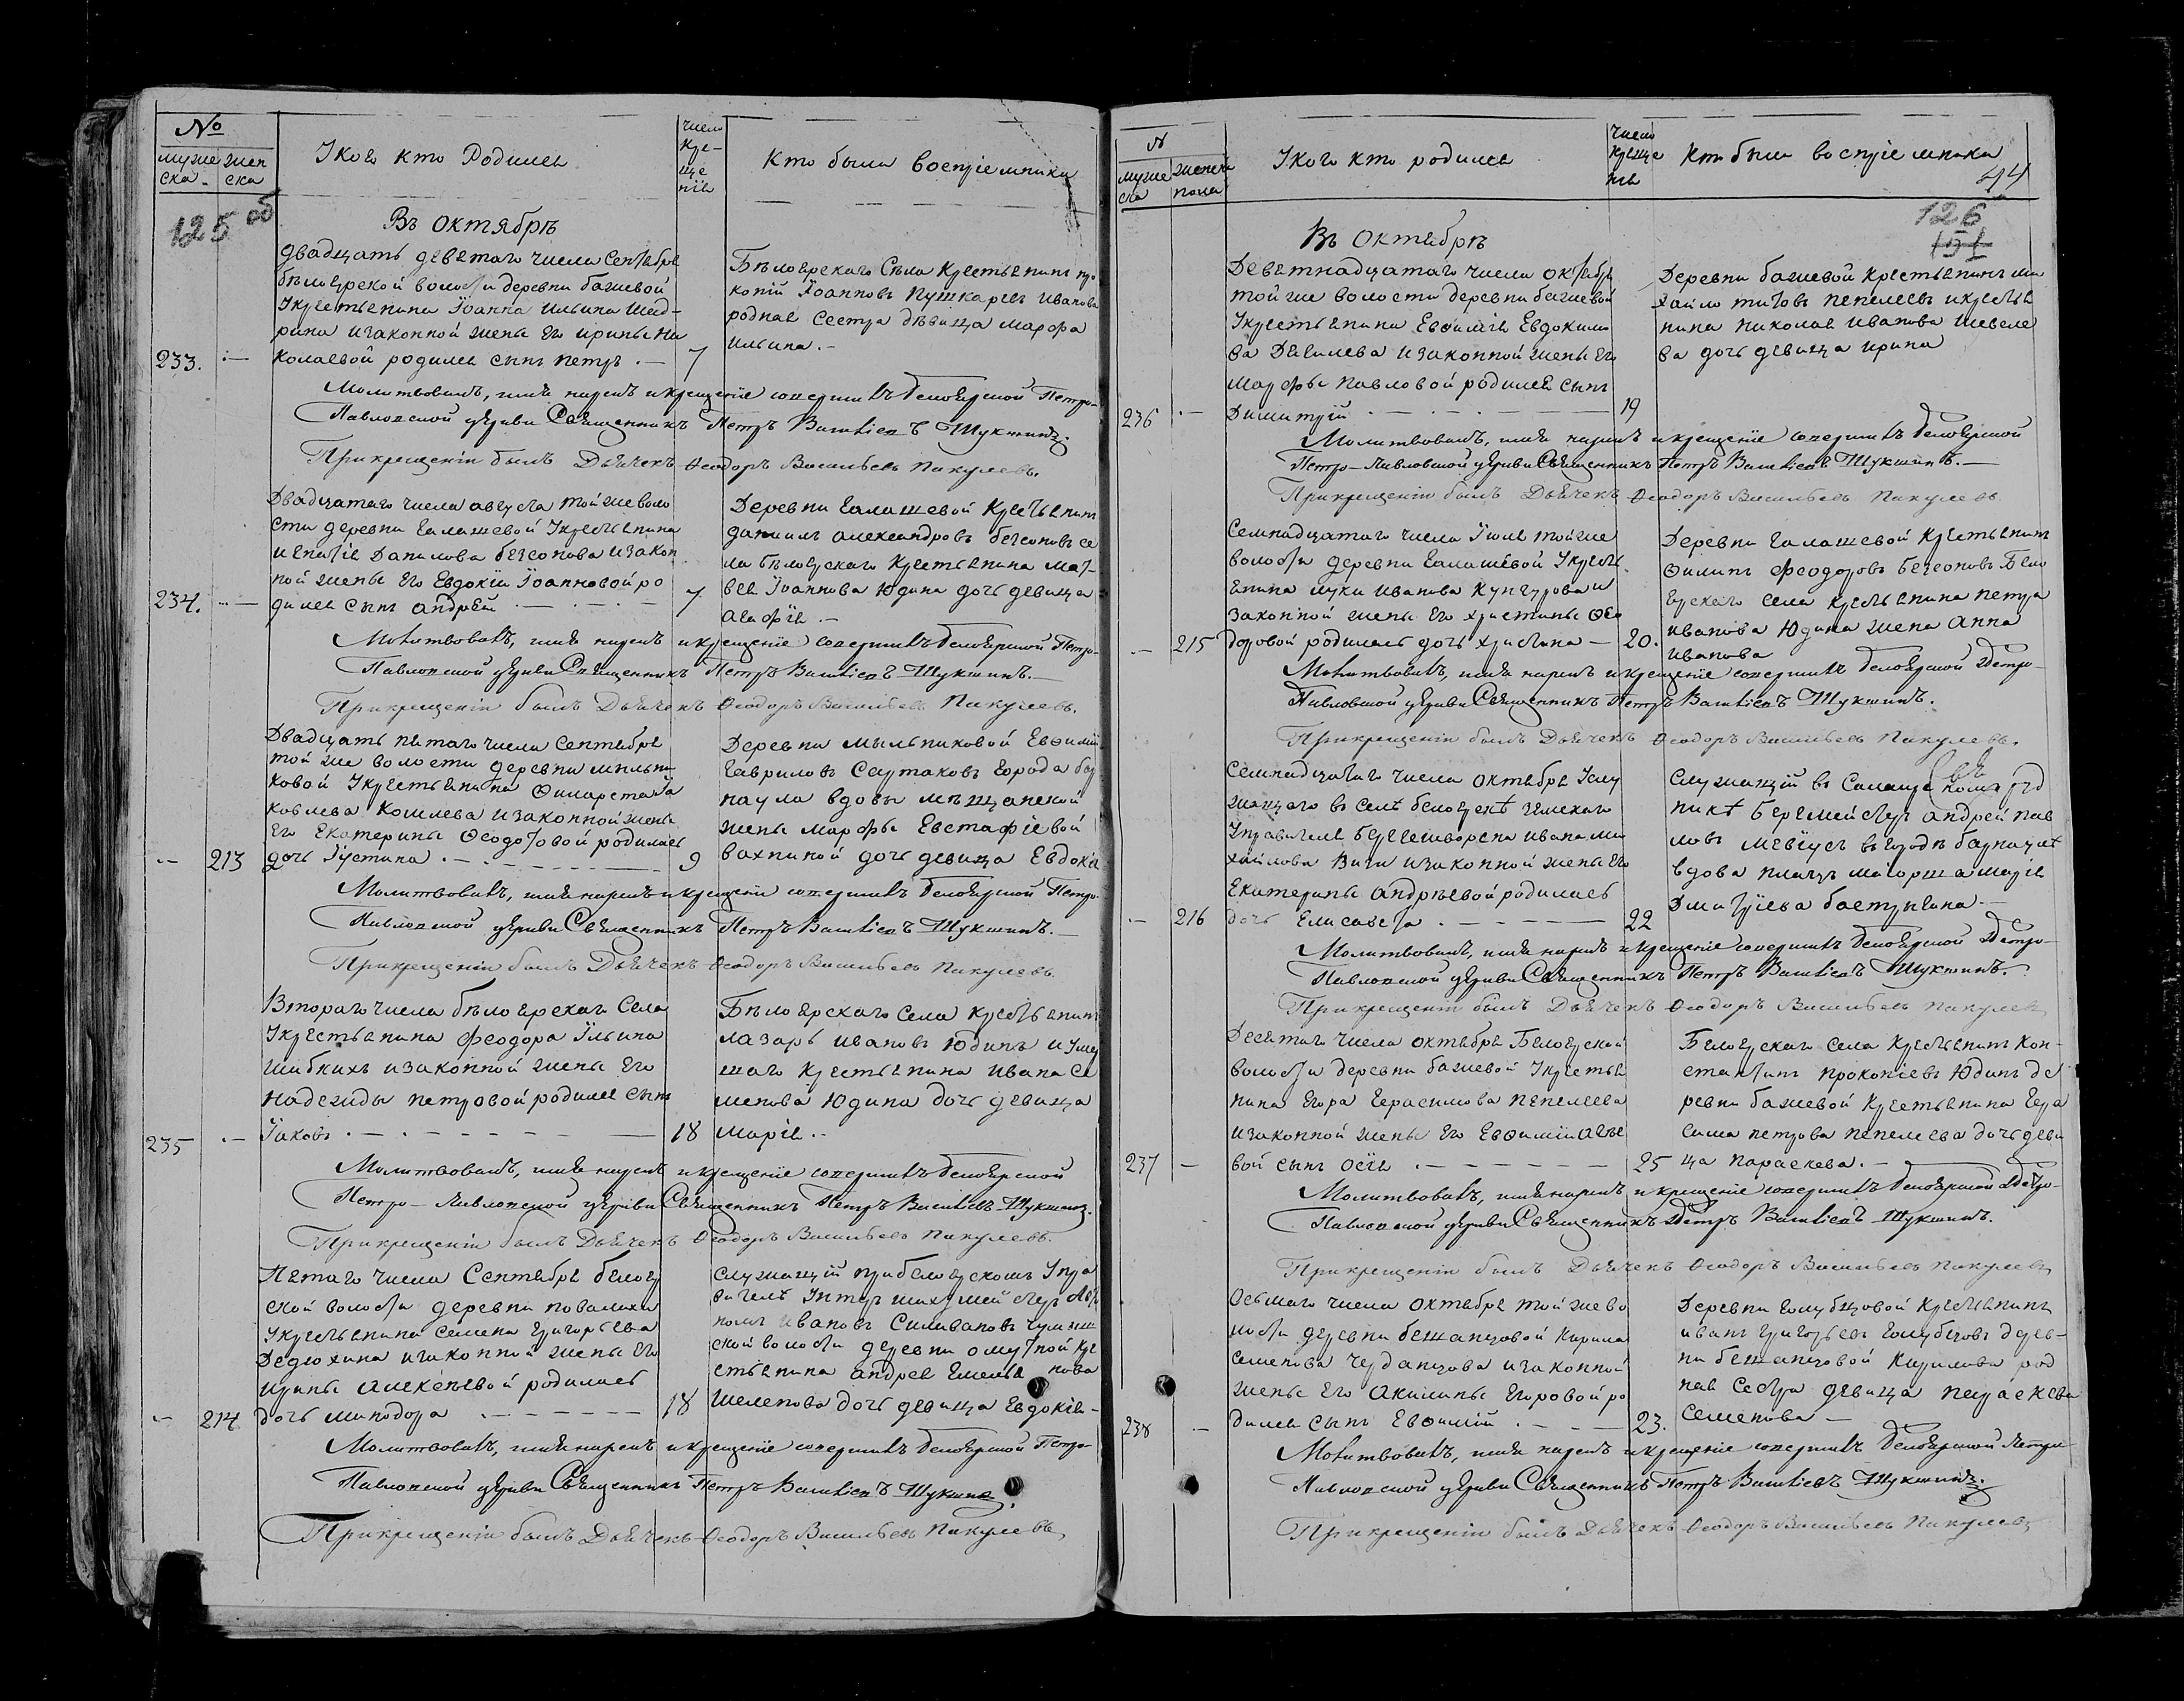 №
муже ска. жен ска
У кого кто родился
число кре- ще нія
Кто были воспріемники
125 об
Въ Октябрѣ
двадцать девятаго числа Сентября
бѣлоярской волости деревни бажевой
У крестьянина Іоанна Ильина Шад-
рина и законной жены его ирины Ни
233. — колаевой родился сынъ петръ. — 7
Бѣлоярскаго Села Крестьянинъ про
копій Іоанновъ Пушкаревъ Иванова
родная Сестра дѣвица марфа
ильина. —
Молитвовалъ, имя нарекъ и крещеніе совершилъ Белоярской Петро-
Павловской церкви Священникъ Петръ Васильевъ Шукшинъ.
При крещеніи былъ Дьячекъ Ѳеодоръ Васильевъ Пакулевъ.
Двадцатаго числа августа той же воло
сти деревни Галашевой У крестьянина
игнатія Данилова безсонова и закон
ной жены его Евдокіи Іоанновой ро
234. — дился сынъ андрей — 7
Деревни Галашевой Крестьянинъ
даниилъ александровъ безсоновъ се
ла бѣлоярскаго Крестьянина мат-
вея Іоаннова Юдина дочь девица
агафія. —
Молитвовалъ, имя нарекъ и крещеніе совершилъ Белоярской Петро-
Павловской церкви Священникъ Петръ Васильевъ Шукшинъ. —
При крещеніи былъ Дьячекъ Ѳеодоръ Васильевъ Пакулевъ.
Двадцать пятаго числа Сентября
той же волости деревни мыльни
ковой У крестьянина Филарета Я
ковлева Кошлева и законной жены
его Екатерины Ѳеодотовой родилась
— 213 дочь Іустина. — 9
Деревни мыльниковой Евфимій
Гавриловъ Сартаковъ города бар
наула вдовы мѣщанской
жены марфы Евстафіевой
вахниной дочь девица Евдокія
Молитвовалъ, имя нарекъ и крещеніе совершилъ Белоярской Петро-
Павловской церкви Священникъ Петръ Васильевъ Шукшинъ. —
При крещеніи былъ Дьячекъ Ѳеодоръ Васильевъ Пакулевъ.
Втораго числа бѣлоярскаго Села
У крестьянина феодора Ильина
шибкихъ и законной жены его
надежды петровой родился сынъ
235 — Іаковъ — 18
Бѣлоярскаго села крестьянинъ
лазарь ивановъ Юдинъ и умер
шаго крестьянина ивана се
менова Юдина дочь девица
марія. —
Молитвовалъ, имя нарекъ и крещеніе совершилъ Белоярской
Петро-Павловской церкви Священникъ Петръ Васильевъ Шукшинъ.
При крещеніи былъ Дьячекъ Ѳеодоръ Васильевъ Пакулевъ.
Пятаго числа Сентября белояр
ской волости деревни повалихи
У крестьянина семена григорьева
Дедюхина и законной жены его
ирины алексѣевой родилась
— 214 дочь минодора — 18
служащій при белоярскомъ Упра
вителѣ Унтеръ шихтмейстеръ
ивановъ Силивановъ чумыш
ской волости деревни омутной кре
стьянина андрея Емелья нова
шелепова дочь девица Евдокія —
Молитвовалъ, имя нарекъ и крещеніе совершилъ Белоярской Петро-
Павловской церкви Священникъ Петръ Васильевъ Шукшинъ.
При крещеніи былъ Дьячекъ Ѳеодоръ Васильевъ Пакулевъ
№
муже ска женска пола
У кого кто родился
Число креще нія
Кто были воспріемники
44
126
151
Въ Октябрѣ
Девятнадцатаго числа октября
той же волости деревни бажевой
У крестьянина Евфимія Евдокимо
ва Дягилева и законной жены его
марфы павловой родился сынъ
236 — Димитрій — 19
Деревни бажевой крестьянинъ ми
хайло титовъ пепелеевъ и крестья
нина николая иванова шевеле
ва дочь девица ирина
Молитвовалъ, имя нарекъ и крещеніе совершилъ Белоярской
Петро-Павловской церкви Священникъ Петръ Васильевъ Шукшинъ. —
При крещеніи былъ Дьячекъ Ѳеодоръ Васильевъ Пакулевъ
Семнадцатаго числа Іюля той же
волости деревни Галашевой У кресть
янина луки иванова Кунгурова и
законной жены его христины Ѳео
— 215 доровой родилась дочь христина — 20.
Деревни Галашевой Крестьянинъ
Филипъ феодоровъ безсоновъ Бело
ярскаго села крестьянина петра
иванова Юдина жена анна
иванова
Молитвовалъ, имя нарекъ и крещеніе совершилъ Белоярской Петро-
Павловской церкви Священникъ Петръ Васильевъ Шукшинъ.
При крещеніи былъ Дьячекъ Ѳеодоръ Васильевъ Пакулевъ.
Семнадцатаго числа октября У слу
жащаго въ селѣ белоярскѣ земскаго
Управителя берггешворена ивана ми
хайлова и законной жены его
Екатерины андрѣевой родилась
— 216 дочь Елисавета — 22
Служащій въ
никѣ бергмейстръ андрей пав
ловъ въ городѣ барнаулѣ
вдова плацъ маіорша марія
Дмитріева
Молитвовалъ, имя нарекъ и крещеніе совершилъ Белоярской Петро-
Павловской церкви Священникъ Петръ Васильевъ Шукшинъ.
При крещеніи былъ Дьячекъ Ѳеодоръ Васильевъ Пакулевъ
Десятаго числа октября Белоярской
волости деревни бажевой У крестья
нина Егора Герасимова пепелеева
и законной жены его Евфиміи
237 — вой сынъ осія — 25
Белоярскаго села крестьянинъ кон-
стантинъ прокопіевъ Юдинъ де
ревни бажевой крестьянина гера
сима петрова пепелева дочь деви
ца параскева. —
Молитвовалъ, имя нарекъ и крещеніе совершилъ Белоярской Петро-
Павловской церкви Священникъ Петръ Васильевъ Шукшинъ.
При крещеніи былъ Дьячекъ Ѳеодоръ Васильевъ Пакулевъ
Осьмаго числа октября той же во
лости деревни бешанцовой Кирила
семенова черданцова и законной
жены его акилины Егоровой ро
238 — дился сынъ Евфимій — 23.
Деревни Голубцовой крестьянинъ
иванъ григорьевъ Голубцовъ дерев-
ни бешанцовой Кирилова род
ная Сестра девица параскева
Семенова —
Молитвовалъ, имя нарекъ и крещеніе совершилъ Белоярской Петро-
Павловской церкви Священникъ Петръ Васильевъ Шукшинъ.
При крещеніи былъ Дьячекъ Ѳеодоръ Васильевъ Пакулевъ